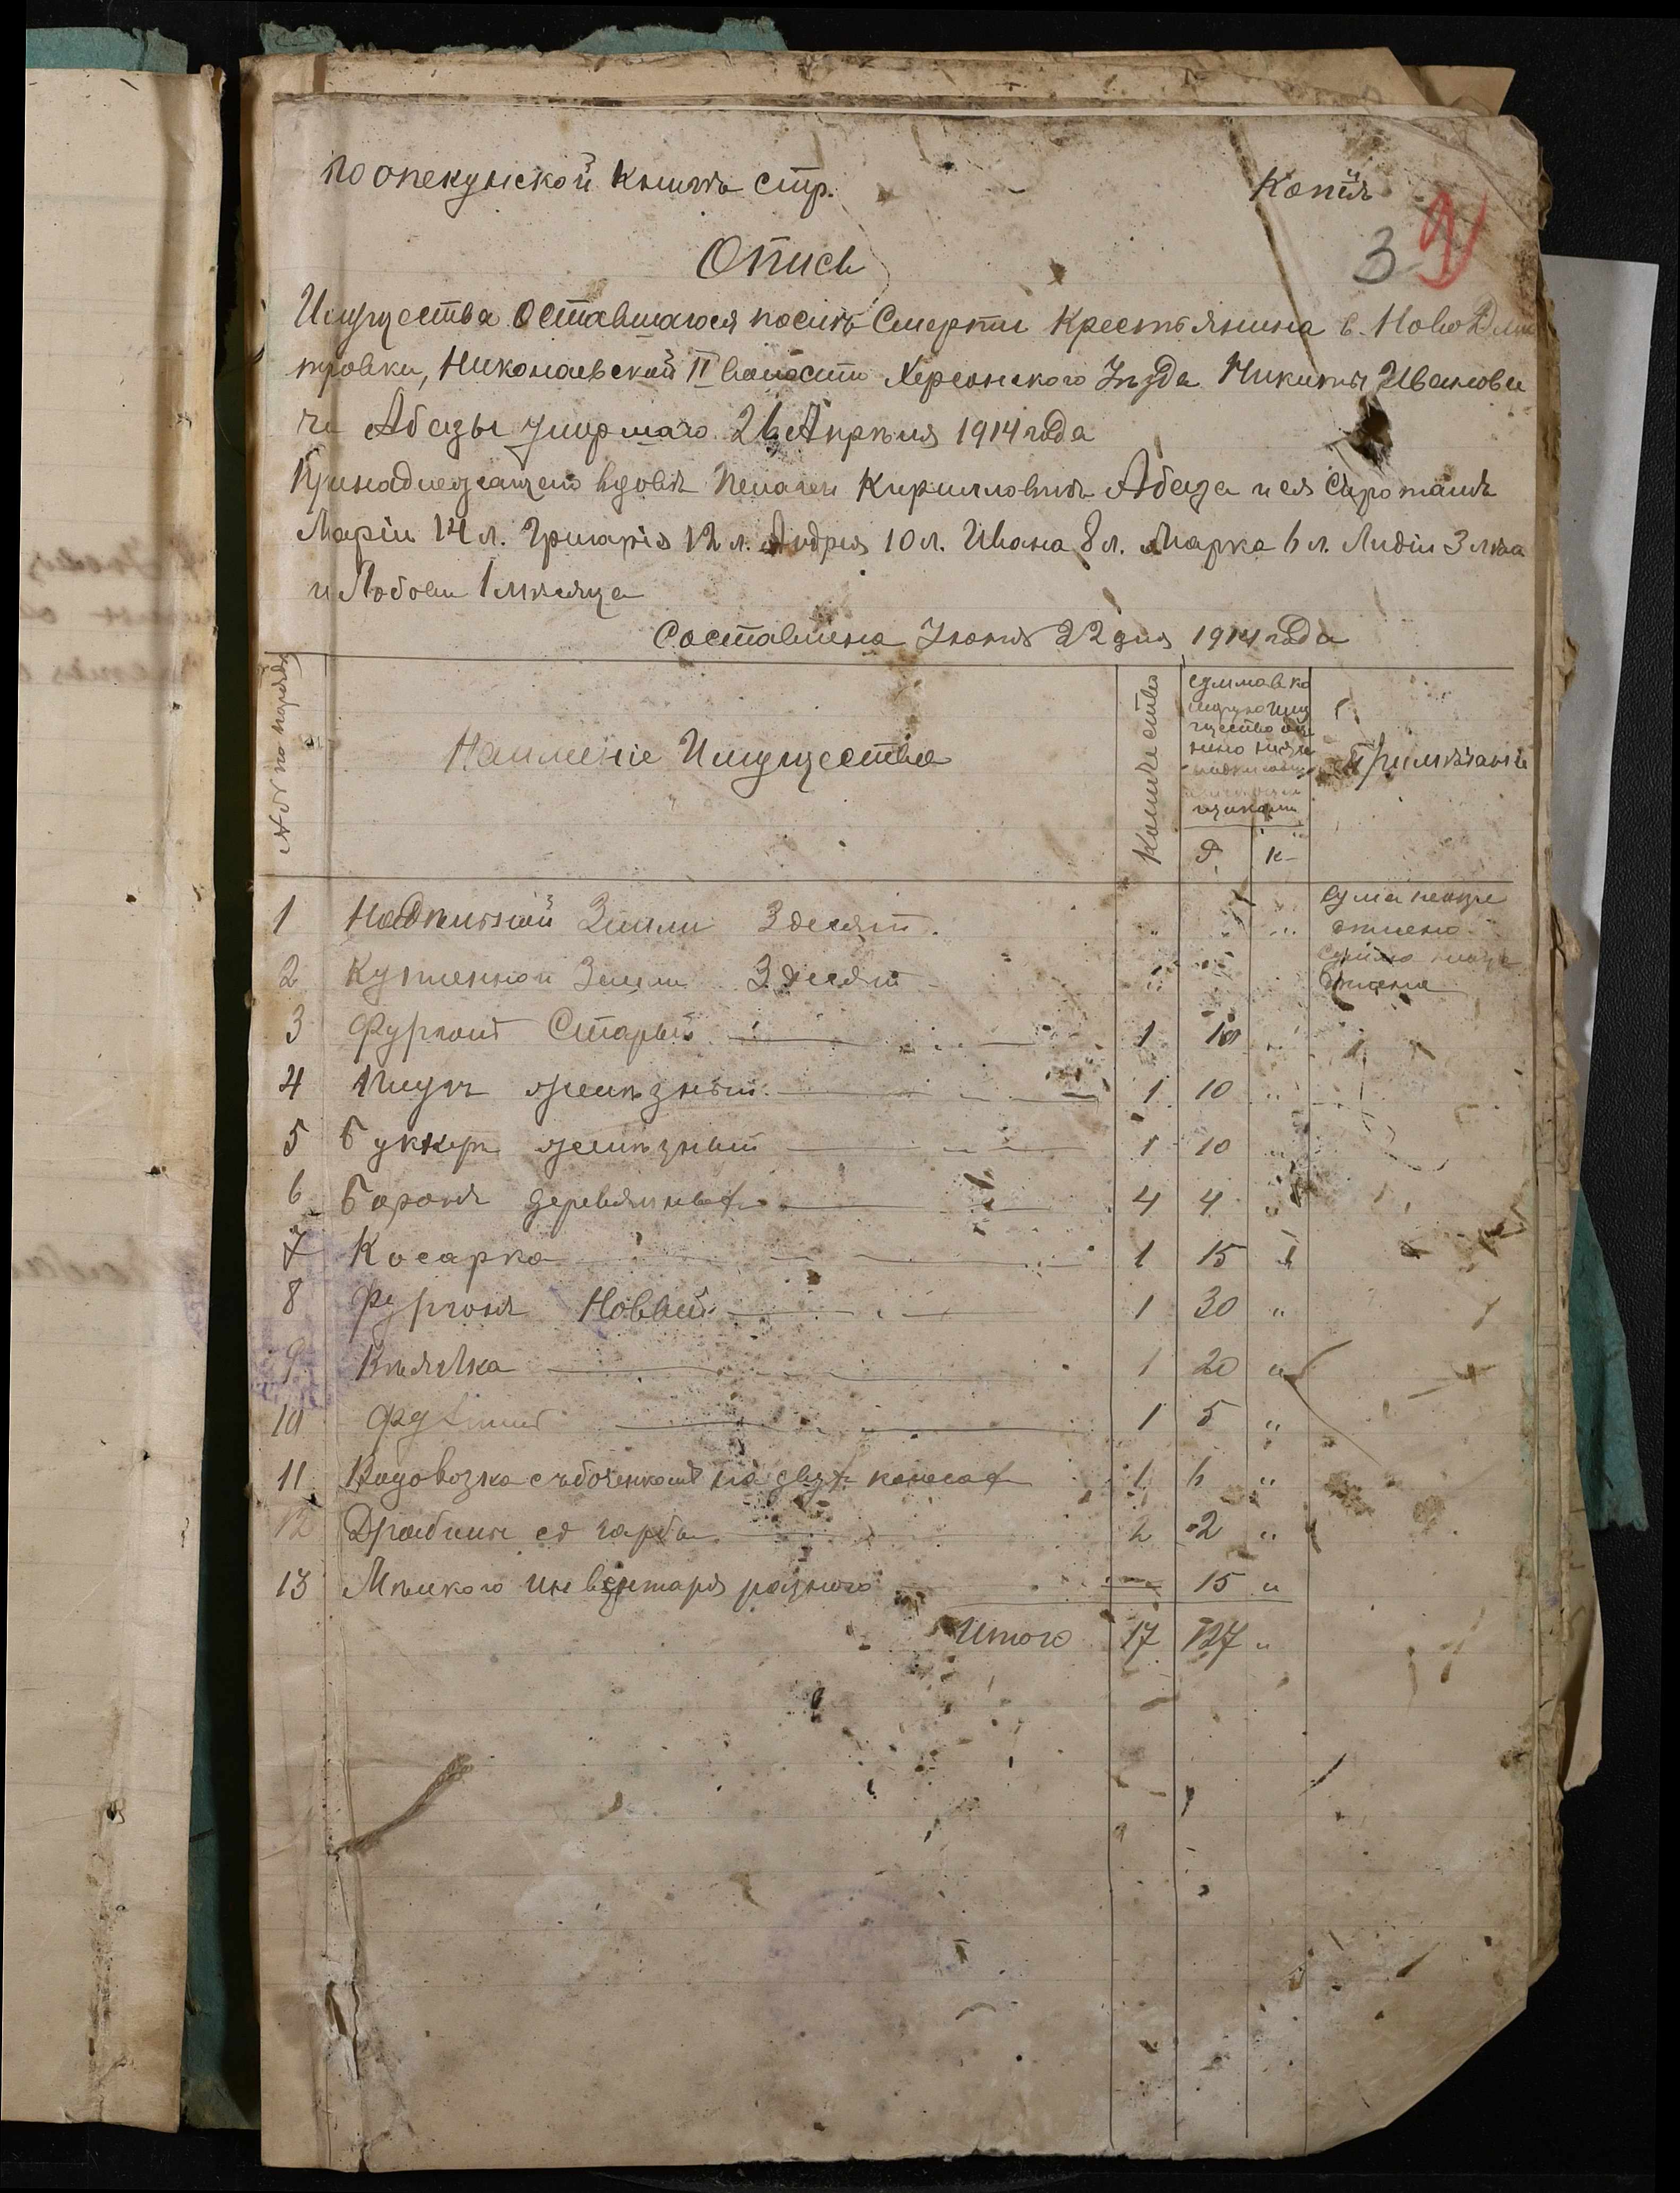 по опекунской Книгѣ стр.
Копія
3 9
Опись
Имущества Оставшагося послѣ Смерти Крестьянина с. Ново Дми
тровки, Николаевской II волости Херсонского Уѣзда Никиты Иванови
ча Абазы умершаго 26 Апрѣля 1914 года
Принадлежащего вдовѣ Пелагеи Кирилловнѣ Абаза и ея Сиротамъ
Маріи 14 л. Григорія 12 л. Андрея 10 л. Ивана 8 л. Марка 6 л. Лидіи 3 лѣта
и Любови 1 мѣсяца
Составлена Іюня 22 дня 1914 года
№№ по порядку
Наименіе Имущества
Количество
сумма в ко
имущество
Примѣчаніе
Р. К.
1 Надѣльной Земли 3 десят. сума неопре
2 Купленной Земли 3 десят
3 Фургонъ Старый 1 10
4 Плугъ желѣзный 1 10 „
5 Буккеръ желѣзный 1 10 „
6 Боронъ деревянныхъ 4 4 „
7 Косарка 1 15 „
8 Фургонъ Новый 1 30 „
9 Вѣялка 1 20 „
10 1 5 „
11 Водовозка съ боченкомъ на двухъ колесахъ 1 6 „
12 Драбины от гарбы 2 2 „
13 Мѣлкого инвентаря разного — 15 „
Итого 17 127 „